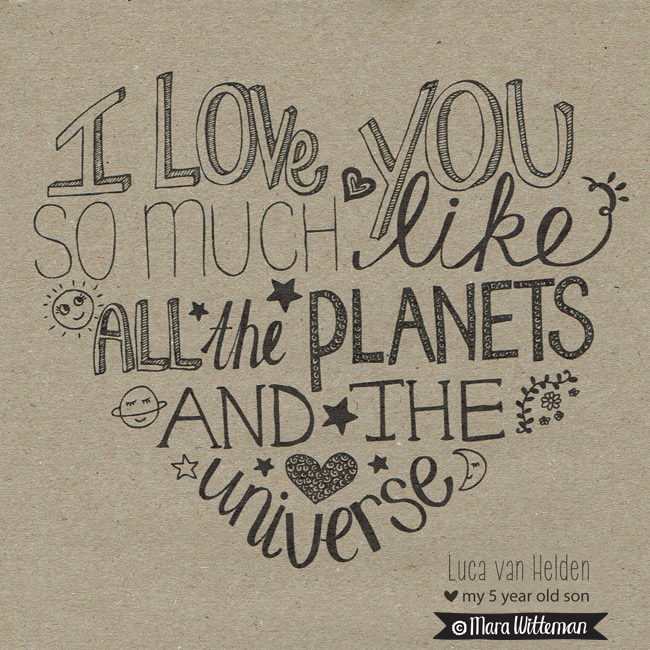 I LOVe YOU
SO MUCH like
ALL the PLANETS
AND THE
universe
Luca van Helden
my 5 year old son
© Mara Witteman